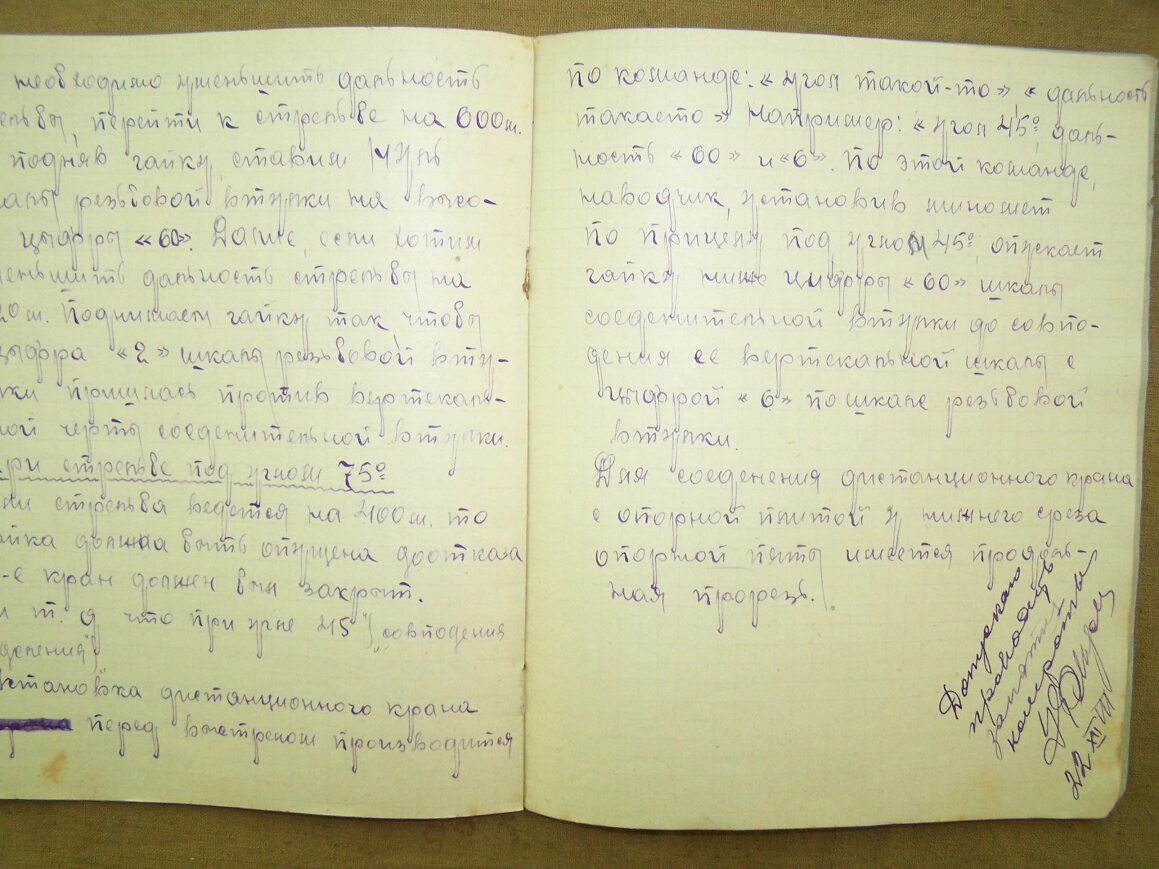 необходимо уменьшить дальность
ельбы, перейти к стрельбе на 600м.
подняв гайку, ставим нуль
алы резьбовой втулки на высо-
цыфры «60». Далее, если хотим
еньшить дальность стрельбы на
20м. Поднимаем гайку так, чтобы
цыфра «2» шкалы резьбовой вту-
ки пришлась против вертекаль-
ной черты соеденительной втулки.
ри стрельбе под углом 75°
ли стрельба ведется на 400м. то
айка должна быть опущена до отказа
-е кран должен был закрыт.
и т. д, что при угле 45°, совподения
деления
становка дистанционного крана
перед выстрелом производится
по команде: «угол такой-то» «дальность
такаето» Например: «угол 45°, даль-
ность «60» и «6». По этой команде,
наводчик, установив миномет
по прицелу под углом 45°, опускает
гайку ниже цифры «60» шкалы
соеденительной втулки до совпо-
дения ее вертекальной шкалы с
цыфрой «6» по шкале резьбовой
втулки.
Для соеденения дистанционного крана
с опорной плитой у нижнего среза
опорной пяты имеется продоль-
ная прорезь.
Допускаю
проводить
занятия
22 XII